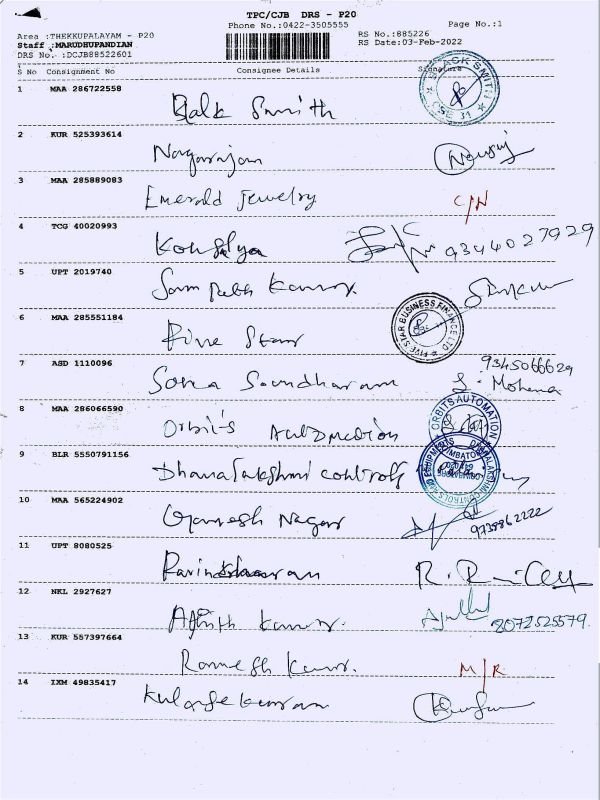 TPC/CJB DRS - P20
Phone No.:0422-3505555
Page No.:1
Area :THEKKUPALAYAM - P20
RS No.:885226
Staff :MARUDHUPANDIAN
RS Date:03-Feb-2022
DRS No. :DCJB88522601
S No Consignment No Consignee Details Signature
1 MAA 286722558
Blak Smith
BLACK SMITH
2 KUR 525393614
Nagarajan
3 MAA 285889083
Emerald Jewelry C/N
4 TCG 40020993
Kousalya 9344027929
5 UPT 2019740
Sampath Kumar.
6 MAA 285551184
Five Star
FIVE STAR BUSINESS FINANCE LTD
7 ASD 1110096
9345066629
Sona Soundharam S. Mohana
8 MAA 286066590
Orbit's Automation
ORBITS AUTOMATION
9 BLR 5550791156
Dhanalakshmi controls
10 MAA 565224902
Ganesh Nagar
11 UPT 8080525
12 NKL 2927627
Ajith Kumar.
8072525579.
13 KUR 557397664
Ramesh Kumar. M/R
14 IXM 49835417